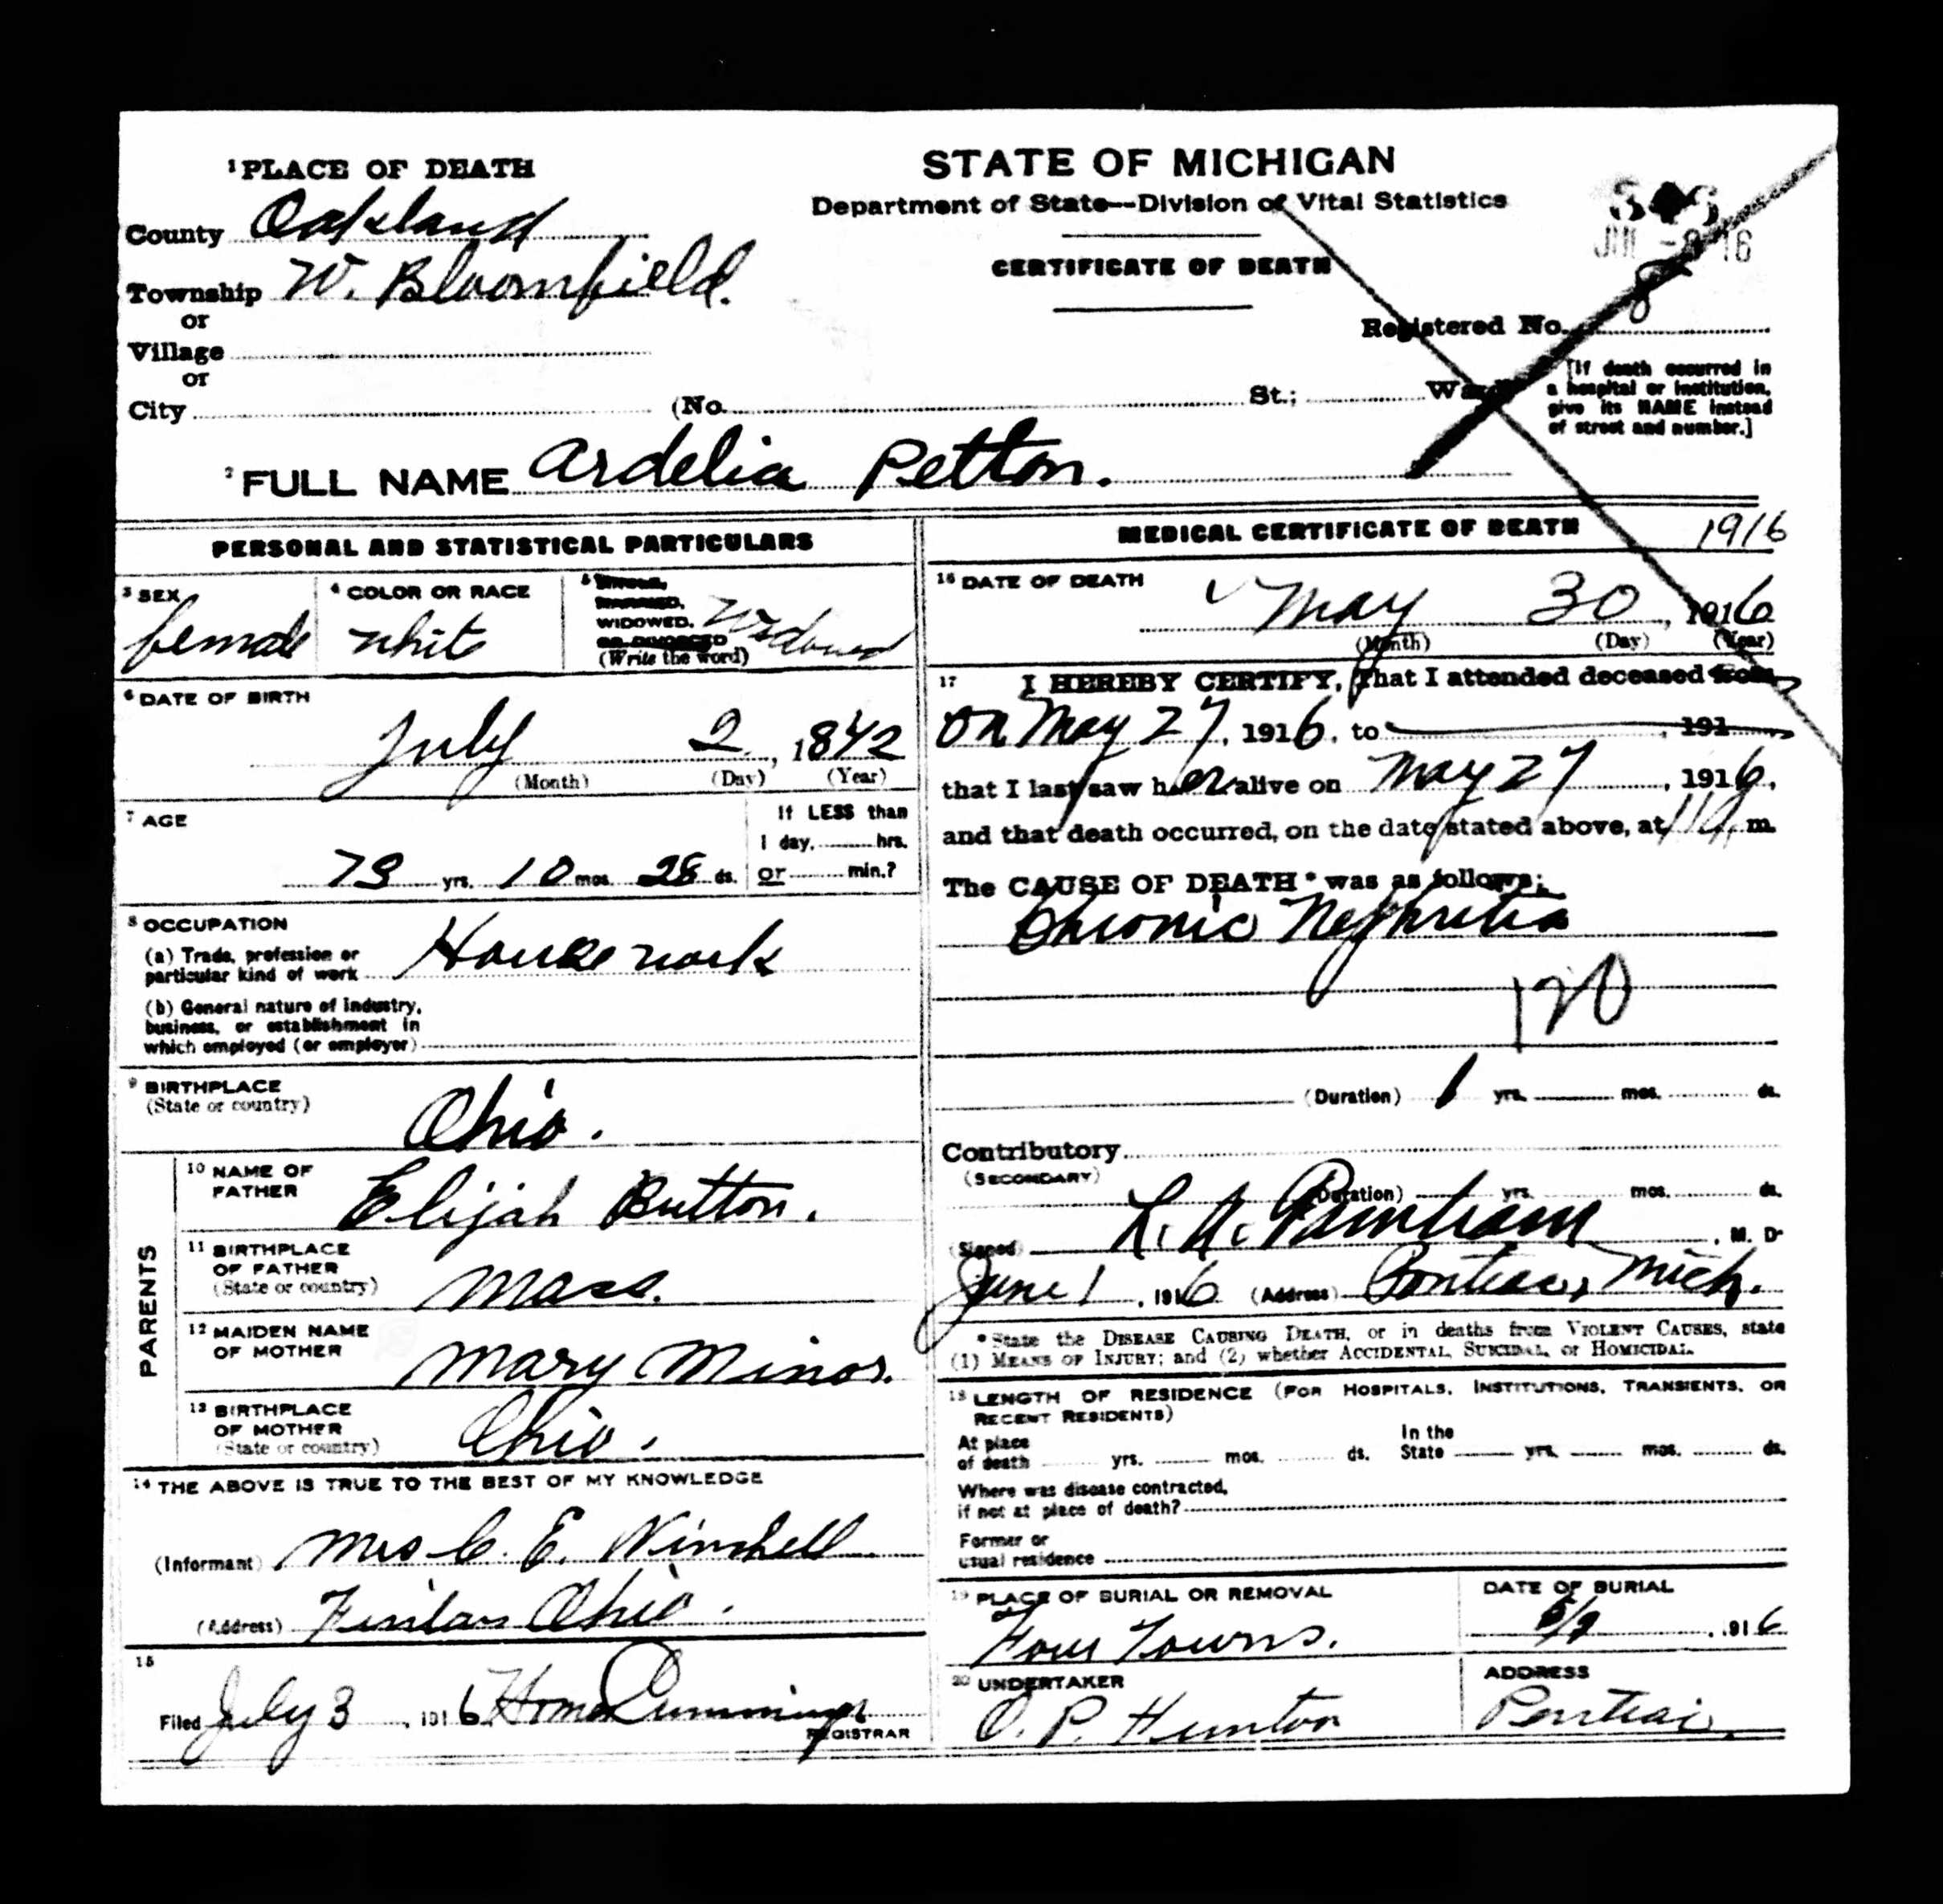 1 PLACE OF DEATH
County Oakland
Township W. Bloomfield.
or
Village
or
City (No. St.; Ward
STATE OF MICHIGAN
Department of State—Division of Vital Statistics
CERTIFICATE OF DEATH
Registered No. 8
[If death occurred in
a hospital or institution,
give its NAME instead
of street and number.]
2 FULL NAME Ardelia Petton.
PERSONAL AND STATISTICAL PARTICULARS
3 SEX
female
4 COLOR OR RACE
white
5 SINGLE,
MARRIED,
WIDOWED,
OR DIVORCED
(Write the word)
Widowed
6 DATE OF BIRTH
July 2, 1842
(Month) (Day) (Year)
7 AGE
73 yrs. 10 mos. 28 ds.
If LESS than
1 day, hrs.
or min.?
8 OCCUPATION
(a) Trade, profession or
particular kind of work House work
(b) General nature of industry,
business, or establishment in
which employed (or employer)
9 BIRTHPLACE
(State or country)
Ohio.
PARENTS
10 NAME OF
FATHER
Elijah Button.
11 BIRTHPLACE
OF FATHER
(State or country)
Mass.
12 MAIDEN NAME
OF MOTHER
Mary Minor.
13 BIRTHPLACE
OF MOTHER
(State or country)
Ohio.
14 THE ABOVE IS TRUE TO THE BEST OF MY KNOWLEDGE
(Informant) Mrs C. E. Winchell
(Address) Ohio.
15
Filed July 3, 1916 Homer Cummings
REGISTRAR
MEDICAL CERTIFICATE OF DEATH 1916
16 DATE OF DEATH
May 30, 1916
(Month) (Day) (Year)
17 I HEREBY CERTIFY, That I attended deceased from
on May 27, 1916, to , 191
that I last saw her alive on May 27, 1916,
and that death occurred, on the date stated above, at m.
The CAUSE OF DEATH* was as follows:
Chronic Nephritis
120
(Duration) 1 yrs. mos. ds.
Contributory
(SECONDARY)
(Duration) yrs. mos. ds.
(Signed) , M. D.
June 1, 1916 (Address) Pontiac, Mich.
*State the DISEASE CAUSING DEATH, or in deaths from VIOLENT CAUSES, state
(1) MEANS OF INJURY; and (2) whether ACCIDENTAL, SUICIDAL, or HOMICIDAL.
18 LENGTH OF RESIDENCE (FOR HOSPITALS, INSTITUTIONS, TRANSIENTS, OR
RECENT RESIDENTS)
At place
of death yrs. mos. ds.
In the
State yrs. mos. ds.
Where was disease contracted,
if not at place of death?
Former or
usual residence
19 PLACE OF BURIAL OR REMOVAL
Four Towns.
DATE OF BURIAL
, 1916
20 UNDERTAKER
ADDRESS
Pontiac